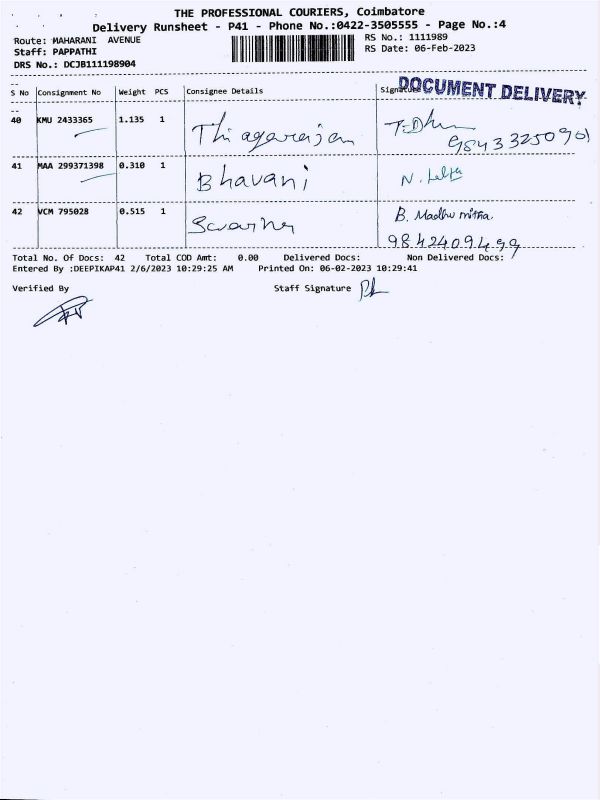 THE PROFESSIONAL COURIERS, Coimbatore
Delivery Runsheet - P41 - Phone No.:0422-3505555 - Page No.:4
Route: MAHARANI AVENUE
RS No.: 1111989
Staff: PAPPATHI
RS Date: 06-Feb-2023
DRS No.: DCJB111198904
DOCUMENT DELIVERY
S No Consignment No Weight PCS Consignee Details Signature
40 KMU 2433365 1.135 1 Thiagarajan
9843325090
41 MAA 299371398 0.310 1 Bhavani N.
42 VCM 795028 0.515 1 B. Madhumitha
9842409499
Total No. Of Docs: 42 Total COD Amt: 0.00 Delivered Docs: Non Delivered Docs:
Entered By :DEEPIKAP41 2/6/2023 10:29:25 AM Printed On: 06-02-2023 10:29:41
Verified By Staff Signature